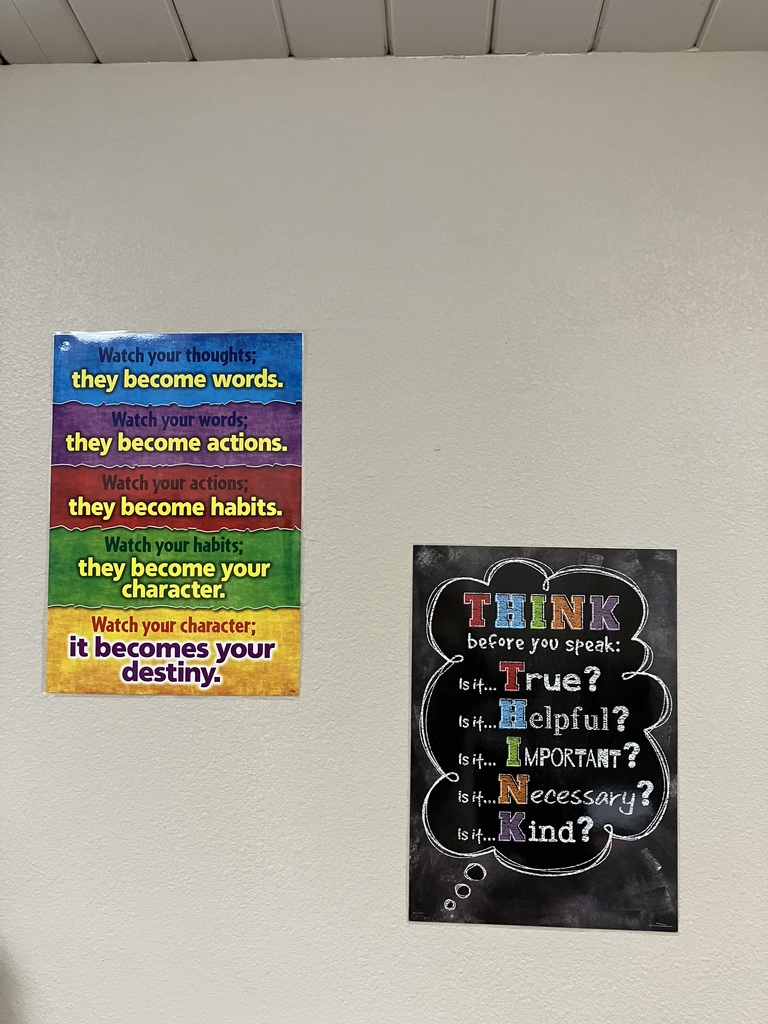 Watch your thoughts;
they become words.
Watch your words;
they become actions.
Watch your actions;
they become habits.
Watch your habits;
they become your
character.
Watch your character;
it becomes your
destiny.
THINK
before you speak:
Is it... True?
Is it... Helpful?
Is it... IMPORTANT?
Is it... Necessary?
Is it... Kind?